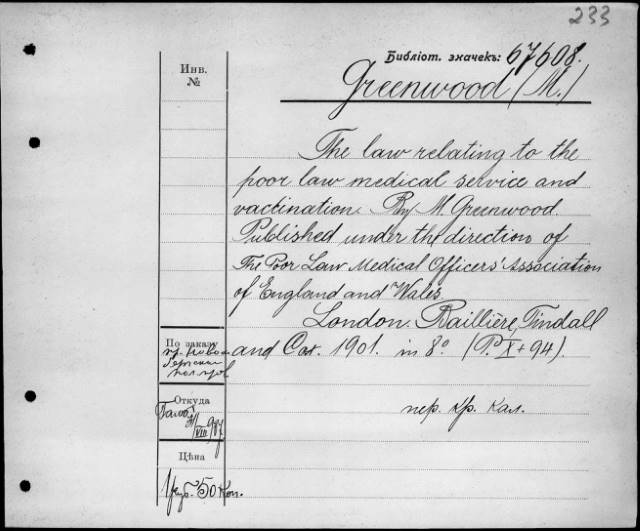 233
Библіот. значекъ: 67608.
Инв.
№
Greenwood (M.)
The law relating to the
poor law medical service and
vaccination. By M. Greenwood.
Published under the direction of
The Poor Law Medical Officers' Association
of England and Wales.
London. Baillière, Tindall
and Cox. 1901. in 8° (P. X + 94).
По заказу
Откуда
Цѣна
1 руб. 50 коп.
пер. кр. кал.